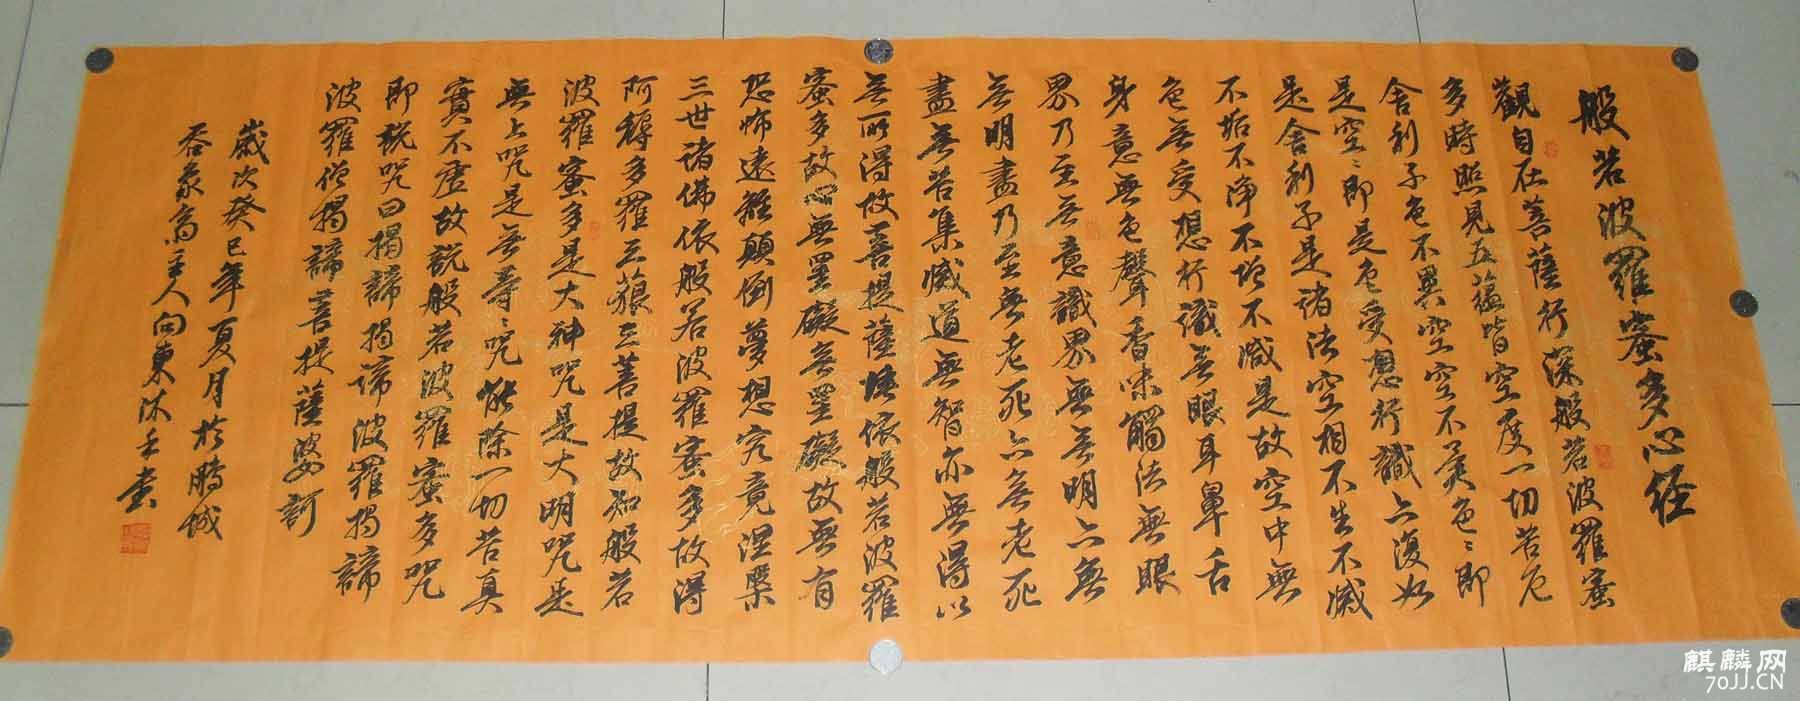 般若波羅蜜多心经
觀自在菩薩行深般若波羅蜜
多時照見五蕴皆空度一切苦厄
舍利子色不異空空不異色〻即
是空〻即是色受想行識亦復如
是舍利子是諸法空相不生不滅
不垢不净不增不减是故空中無
色無受想行識無眼耳鼻舌
身意無色聲香味觸法無眼
界乃至無意識界無無明亦無
無明盡乃至無老死亦無老死
盡無苦集滅道無智亦無得以
無所得故菩提薩埵依般若波羅
蜜多故心無罣礙無罣礙故無有
恐怖遠離顛倒夢想究竟涅槃
三世诸佛依般若波羅蜜多故得
阿耨多羅三藐三菩提故知般若
波羅蜜多是大神咒是大明咒是
無上咒是無等〻咒能除一切苦真
實不虚故説般若波羅蜜多咒
即説咒曰揭諦揭諦波羅揭諦
波羅僧揭諦菩提薩婆訶
歲次癸巳年夏月於鹏城
主人向東沐手書
麒麟网
70JJ.CN